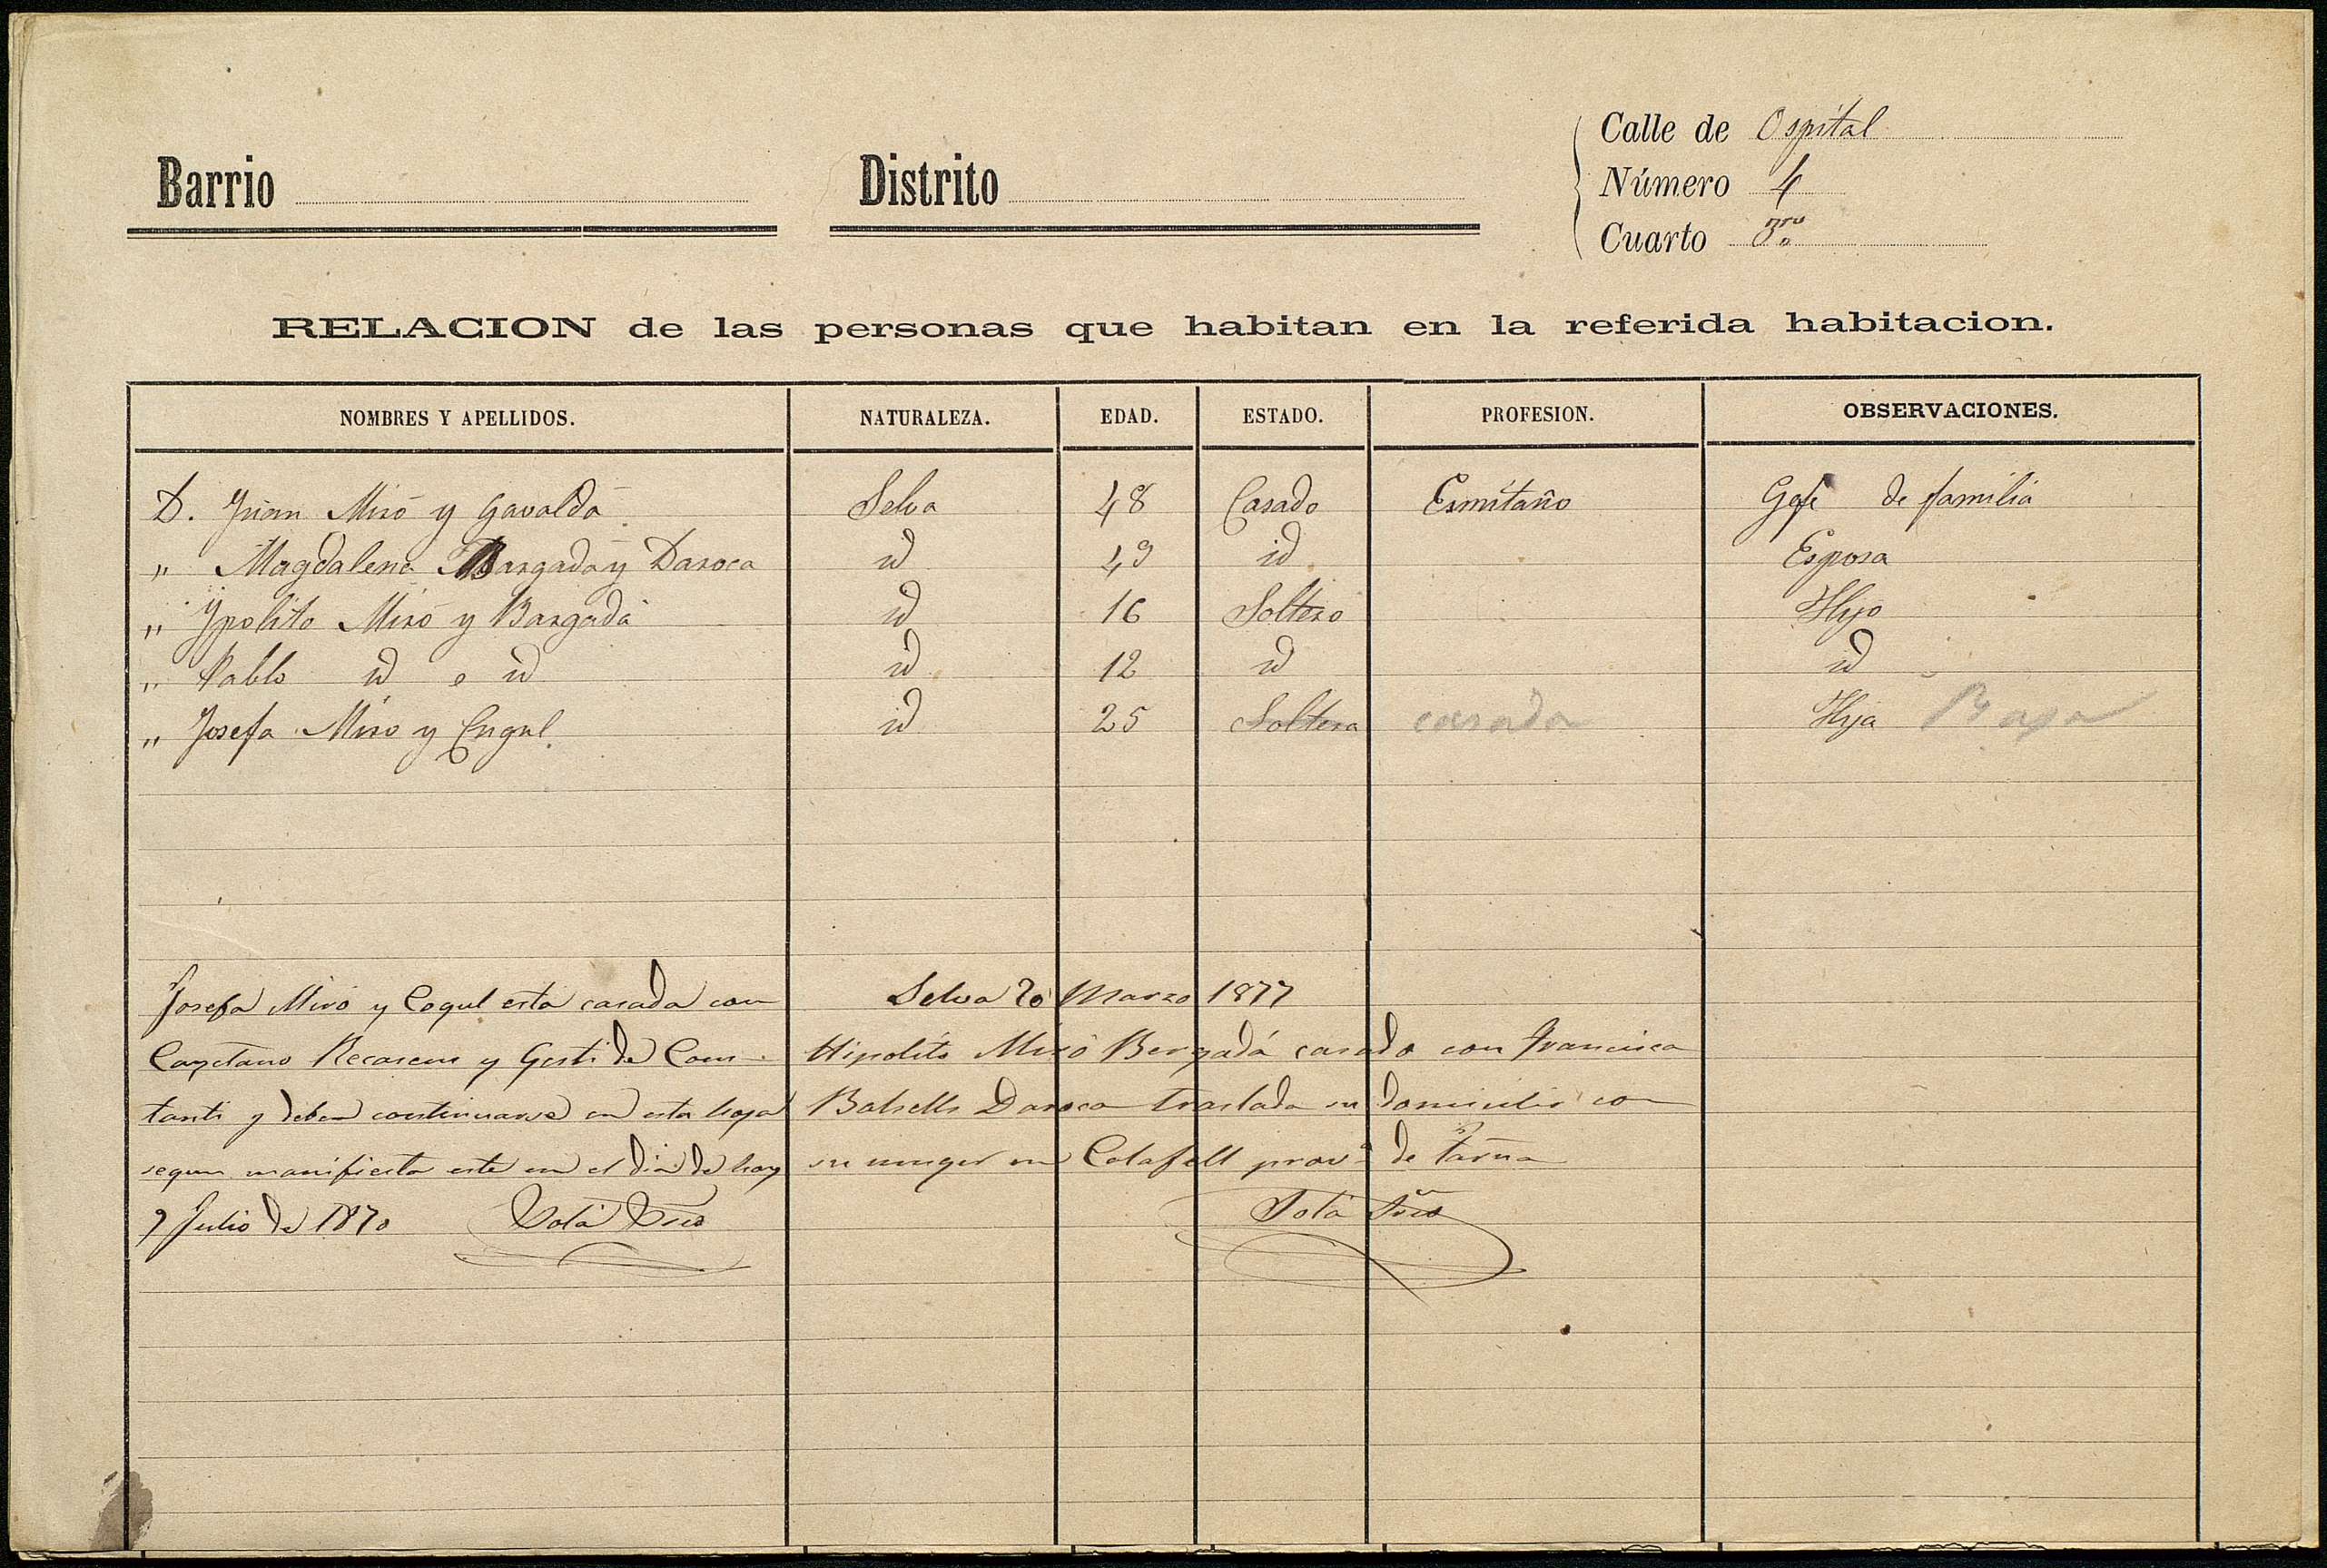 Barrio
Distrito
Calle de Ospital
Número 4
Cuarto 3ro
RELACION de las personas que habitan en la referida habitacion.
NOMBRES Y APELLIDOS. NATURALEZA. EDAD. ESTADO. PROFESION. OBSERVACIONES.
D. Juan Miró y Gavaldá Selva 48 Casado Ermitaño Gefe de familia
" Magdalena Bargadá y Daroca id 49 id Esposa
" Ypolito Miró y Bargadá id 16 Soltero Hijo
" Pablo id e id id 12 id id
" Josefa Miro y Cugul id 25 Soltera casada Hija Baja
Josefa Miró y Cogul esta casada con
Cayetano Recasens y Gesti de Cons-
tanti y deben continuarse en esta hoja
segun manifiesta este en el dia de hoy
7 Julio de 1870 Solá Srio
Selva 20 Marzo 1877
Hipolito Miró Bergadá casado con Francisca
Balsells Daroca traslada su domicilio con
su muger en Calafell prova de Tarna
Solá Srio